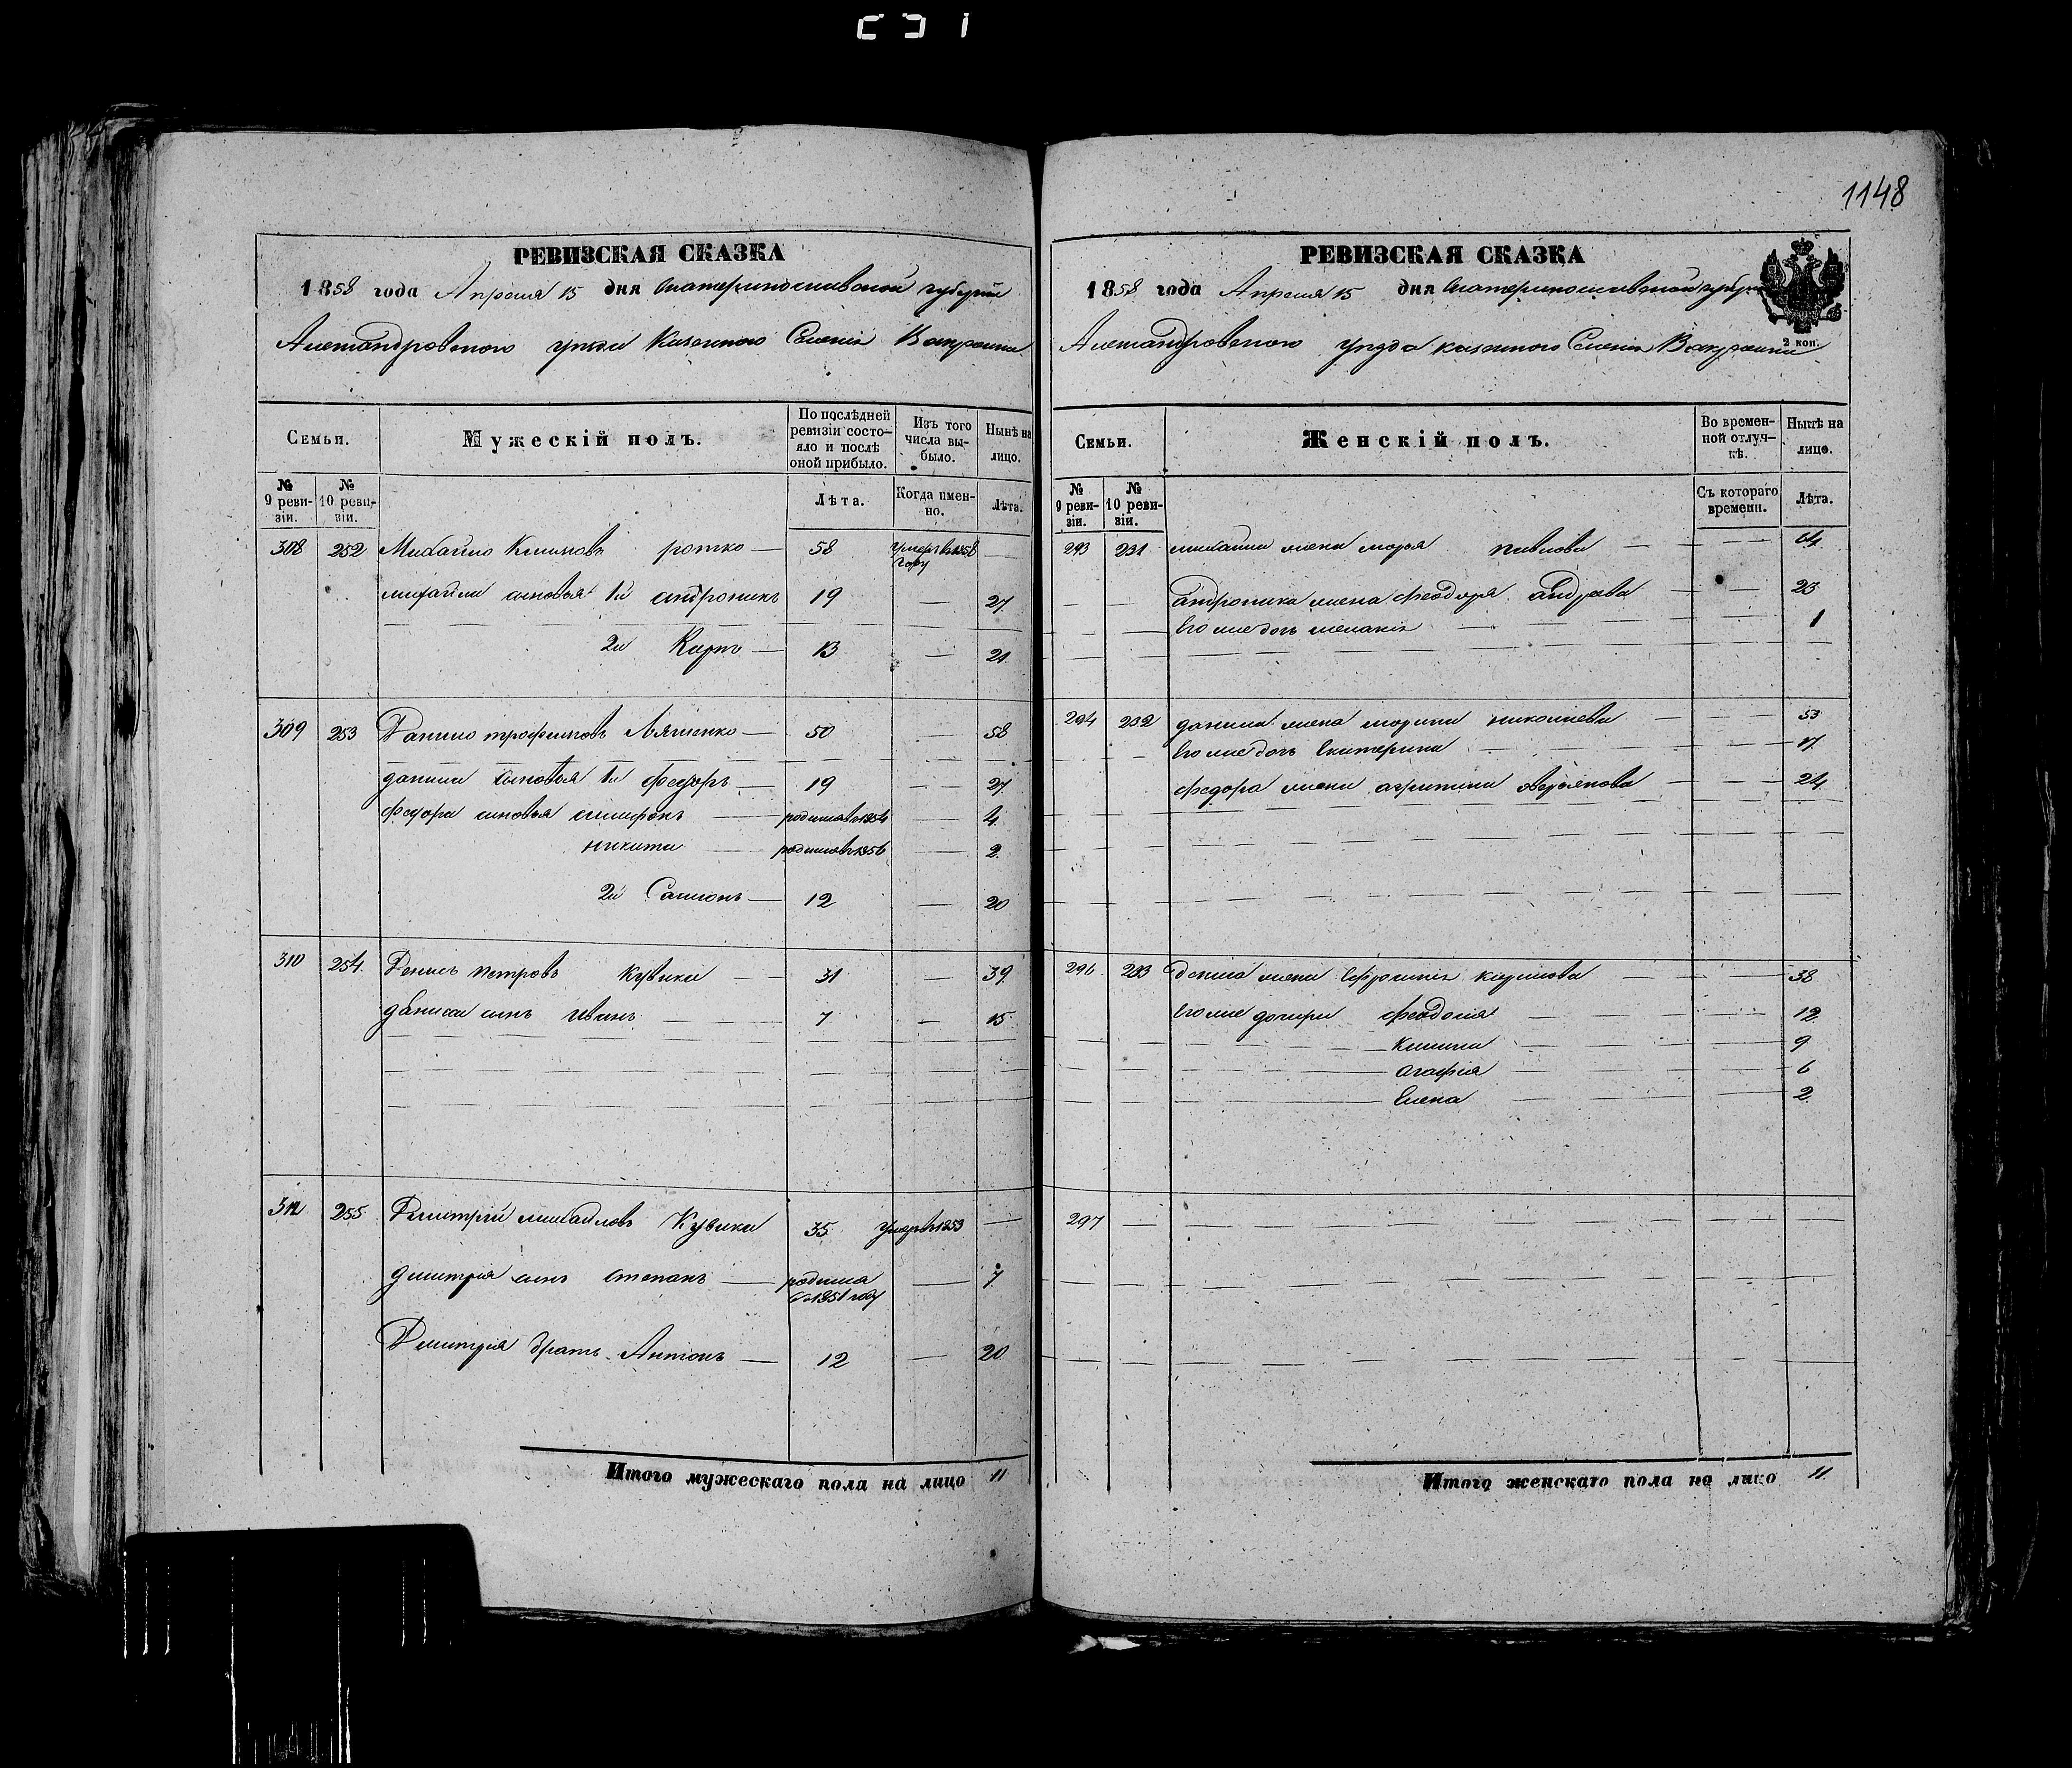 1148
РЕВИЗСКАЯ СКАЗКА
1858 года Апреля 15 дня Екатеринославской губернии
Александровского уезда Казенного Селения
Семьи. Мужескій полъ. По послѣдней ревизіи состо-яло и послѣ оной прибыло. Изъ того числа вы-было. Нынѣ на лицо.
№ 9 реви-зіи. № 10 реви-зіи. Лѣта. Когда имен-но. Лѣта.
308 252 Михайло Климовъ 58 умеръ в 1858 году
михайла сыновья 1й андроникъ 19 — 27
2й Карпъ — 13 — 21
309 253 Данило трофимовъ Ляшенко — 50 — 58
данила сыновья 1й федоръ — 19 — 27
федора сыновья — родился в 1854 — 4
никита — родился в 1856 — 2
2й Самсонъ — 12 — 20
310 254 Денисъ петровъ кувика — 31 — 39
дениса сынъ иванъ — 7 — 15
255 Дмитрий михайловъ Кувика 35 умеръ в 1853 —
дмитрия сынъ степанъ — родился в 1851 году — 7
Дмитрия братъ Антонъ — 12 — 20
Итого мужескаго пола на лицо 11
РЕВИЗСКАЯ СКАЗКА
1858 года Апреля 15 дня Екатеринославской губернии
2 коп.
Александровского уезда казенного Селения
Семьи. Женскій полъ. Во времен-ной отлуч-кѣ. Нынѣ на лицо.
№ 9 реви-зіи. № 10 реви-зіи. Съ котораго времени. Лѣта.
293 231 михайла жена марья павлова — —
андроника жена — — 23
его же дочь мелания — — 1
294 232 данила жена марина николаева — — 53
его же дочь Екатерина — — 17
федора жена — — 24
296 233 дениса жена Ефросиния — — 38
его же дочери феодосия — — 12
— — 9
агафия — — 6
Елена — — 2
297
Итого женскаго пола на лицо 11